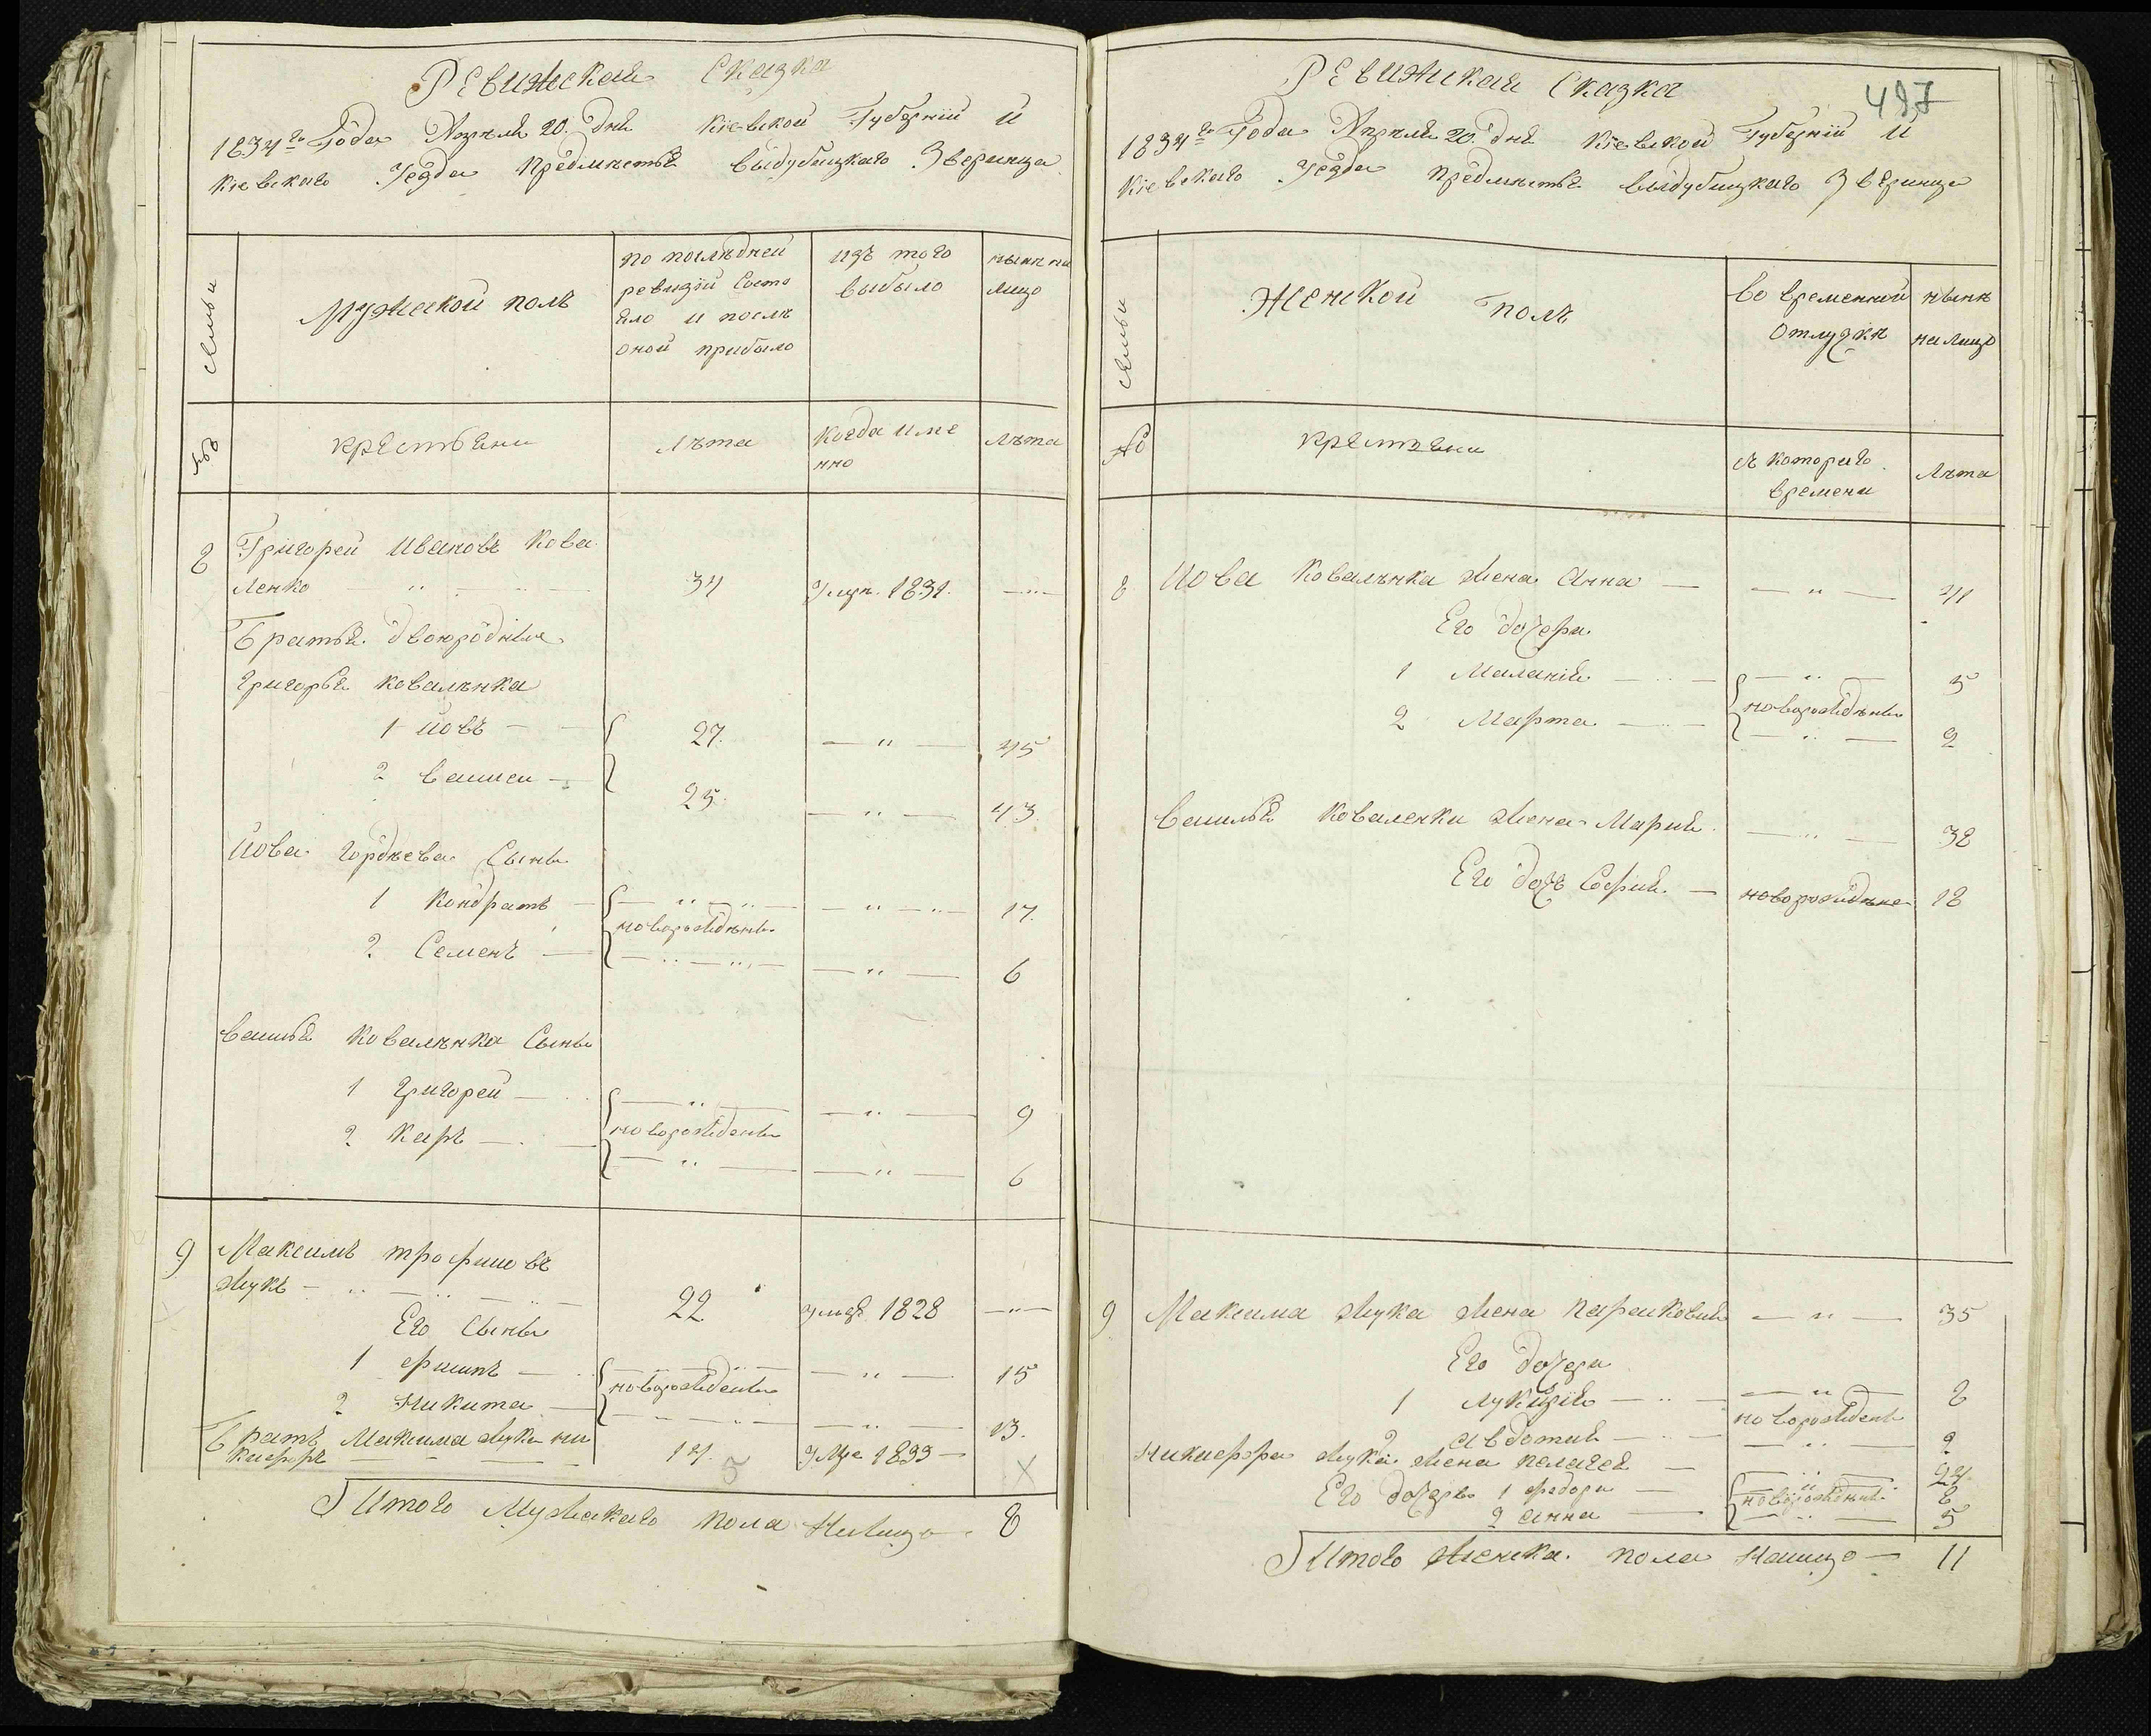 Ревижская Сказка
1834го Года Апреля 20. дня Кіевской Губерніи и
Кіевскаго Уезда предместья выдубицкаго Зверинца
семьи
Мужеской полъ
по последней
ревизіи состо
яло и после
оной прибыло
изъ того
выбыло
ныне на
лицо
№
крестьяни
лета
когда име
нно
лета
8
Григорей Ивановъ Кова
ленко
34
Умре. 1831.
Братья двоюродніе
григорья коваленка
1 Иовъ
27.
45
2 василей
25.
43.
Иова гордеева Сыны
1 Кондратъ
17.
новорожденны
2 Семенъ
6
василья коваленка Сыны
1 григорей
9
новорожденны
2 Карпъ
6
9
Максимъ трофимовъ
жукъ
22
умре 1828
Его Сыны
1 филипъ
15
новорожденны
2 Никита
13.
Братъ Максима жука ни
кифоръ
17.
Умре 1833
Итого Мужскаго пола Налицо
8
497
Ревижская Сказка
1834го Года Апреля 20. дня Кіевской Губерніи и
Кіевскаго Уезда предместья выдубицкаго Зверинца
семьи
Женской полъ
во временной
отлучке
ныне
на лицо
№
крестьяни
съ котораго
времени
лета
8
Иова Коваленка жена Анна
41
Его дочери
1 Маланія
5
новорожденны
2 Марта
2
василья коваленки жена Марія
38
Его дочь Софія.
новорожденне
18
9
Максима жука жена парасковия
35
Его дочери
1 лукерія
8
новорожденны
2 Авдотия
2
Никифора жука жена пелагея
24.
Его дочеры 1 федора
8
новорожденны
2 анна
5
Итого женска. пола Налицо
11